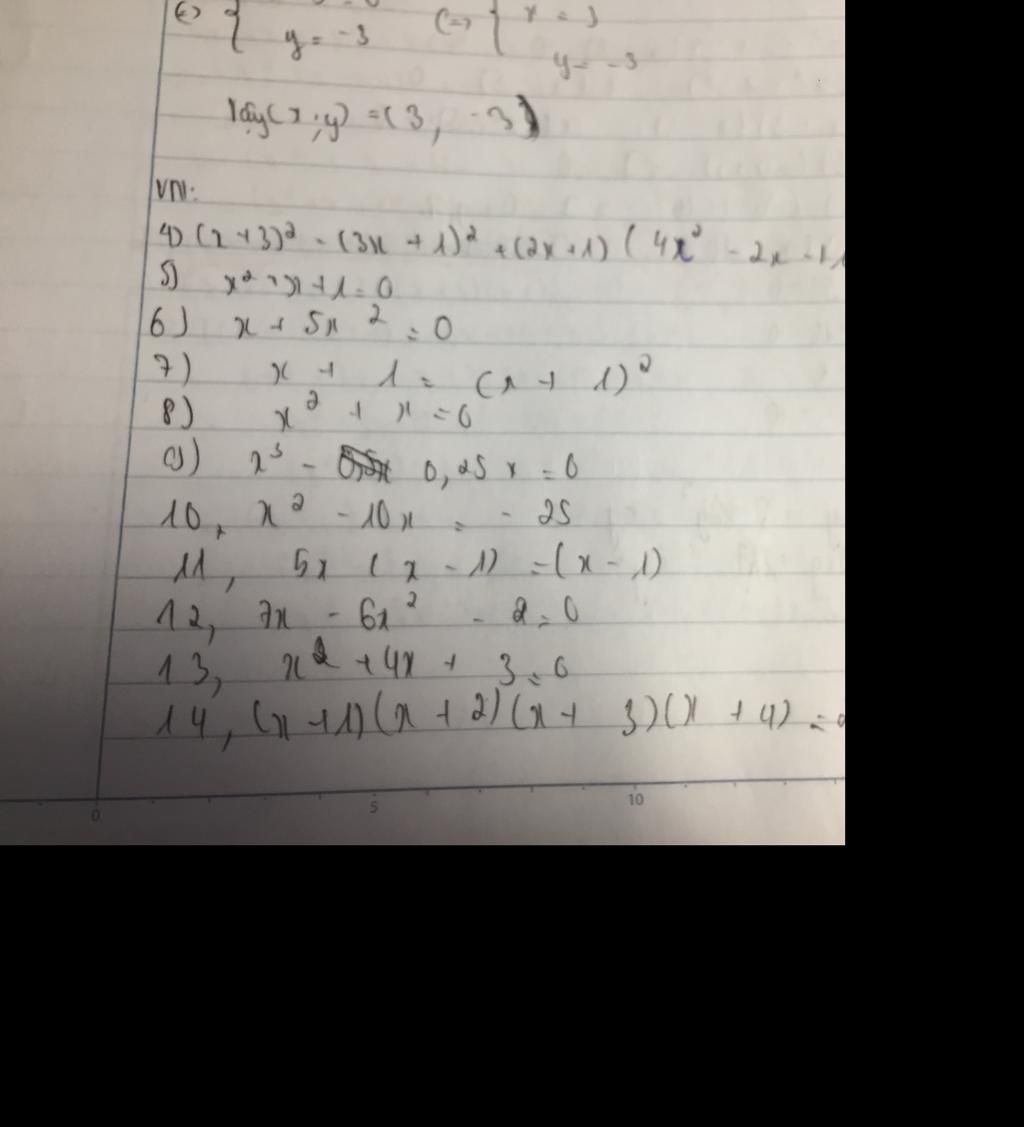 y = -3 (=) { x = 3
y = -3
Vậy (x;y) = (3, -3)
VN:
4) (x+3)² - (3x + 1)² + (2x+1) ( 4x² - 2x
5) x² + x + 1 = 0
6) x + 5x² = 0
7) x + 1 = (x + 1)²
8) x² + x = 0
9) x³ - 0,25 x = 0
10, x² - 10x = - 25
11, 5x ( x - 1) = (x - 1)
12, 7x - 6x² - 2 = 0
13, x² + 4x + 3 = 0
14, (x+1)(x + 2)(x + 3)(x + 4) =
0 5 10